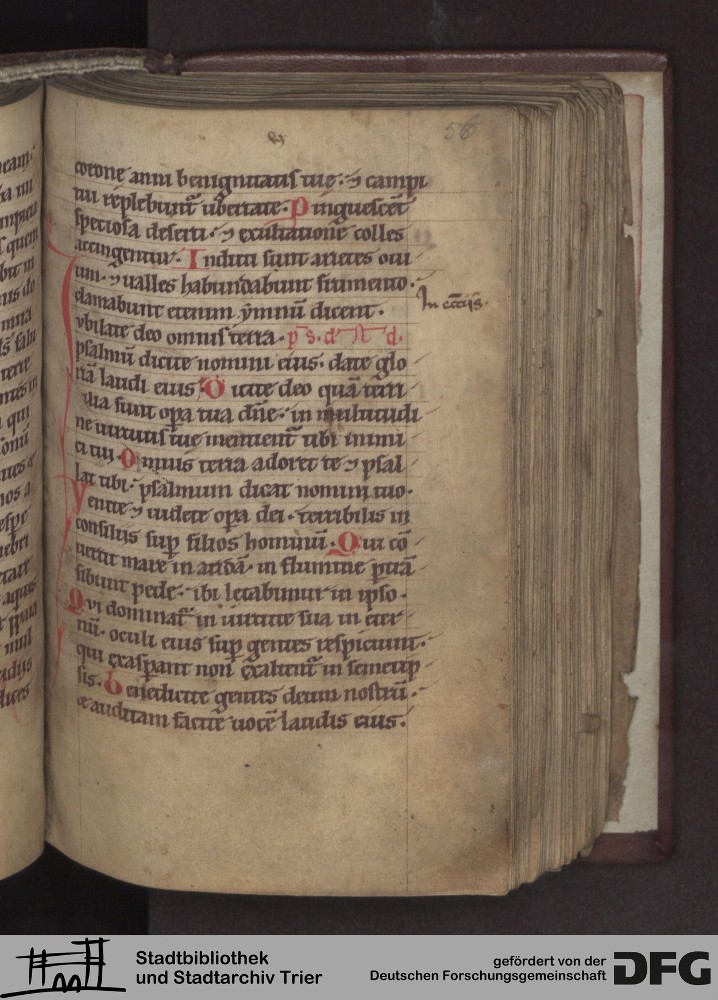 56
corone anni benignitatis tue · ⁊ campi
tui replebunt̄ ubertate · Pinguescēt
speciosa deserti · ⁊ exultatione colles
accingentur · Induti sunt arietes oui
um · ⁊ ualles habundabunt frumento ·
clamabunt etenim ẏmnū dicent ·
In eccīīs ·
Ivbilate deo omnis terra · d.
psalmū dicite nomini eius · date glo
riā laudi eius · Dicite deo quā terri
bilia sunt opa tua dn̄e · in multitudi
ne uirtutis tue mentient̄ tibi inimi
ci tui · Omnis terra adoret te ⁊ psal
lat tibi · psalmum dicat nomini tuo ·
Venite ⁊ uidete opa dei · terribilis in
consiliis sup filios hominū · Qui cō
uertit mare in aridā · in flumine ptrā
sibunt pede · ibi letabimur in ipso ·
Qvi dominat̄ in uirtute sua in eter
nū · oculi eius sup gentes respiciunt ·
qui exaspant non exaltent̄ in semetip
sis · Benedicite gentes deum nostrū ·
et auditam facite uocē laudis eius ·
Stadtbibliothek
und Stadtarchiv Trier
gefördert von der
Deutschen Forschungsgemeinschaft
DFG